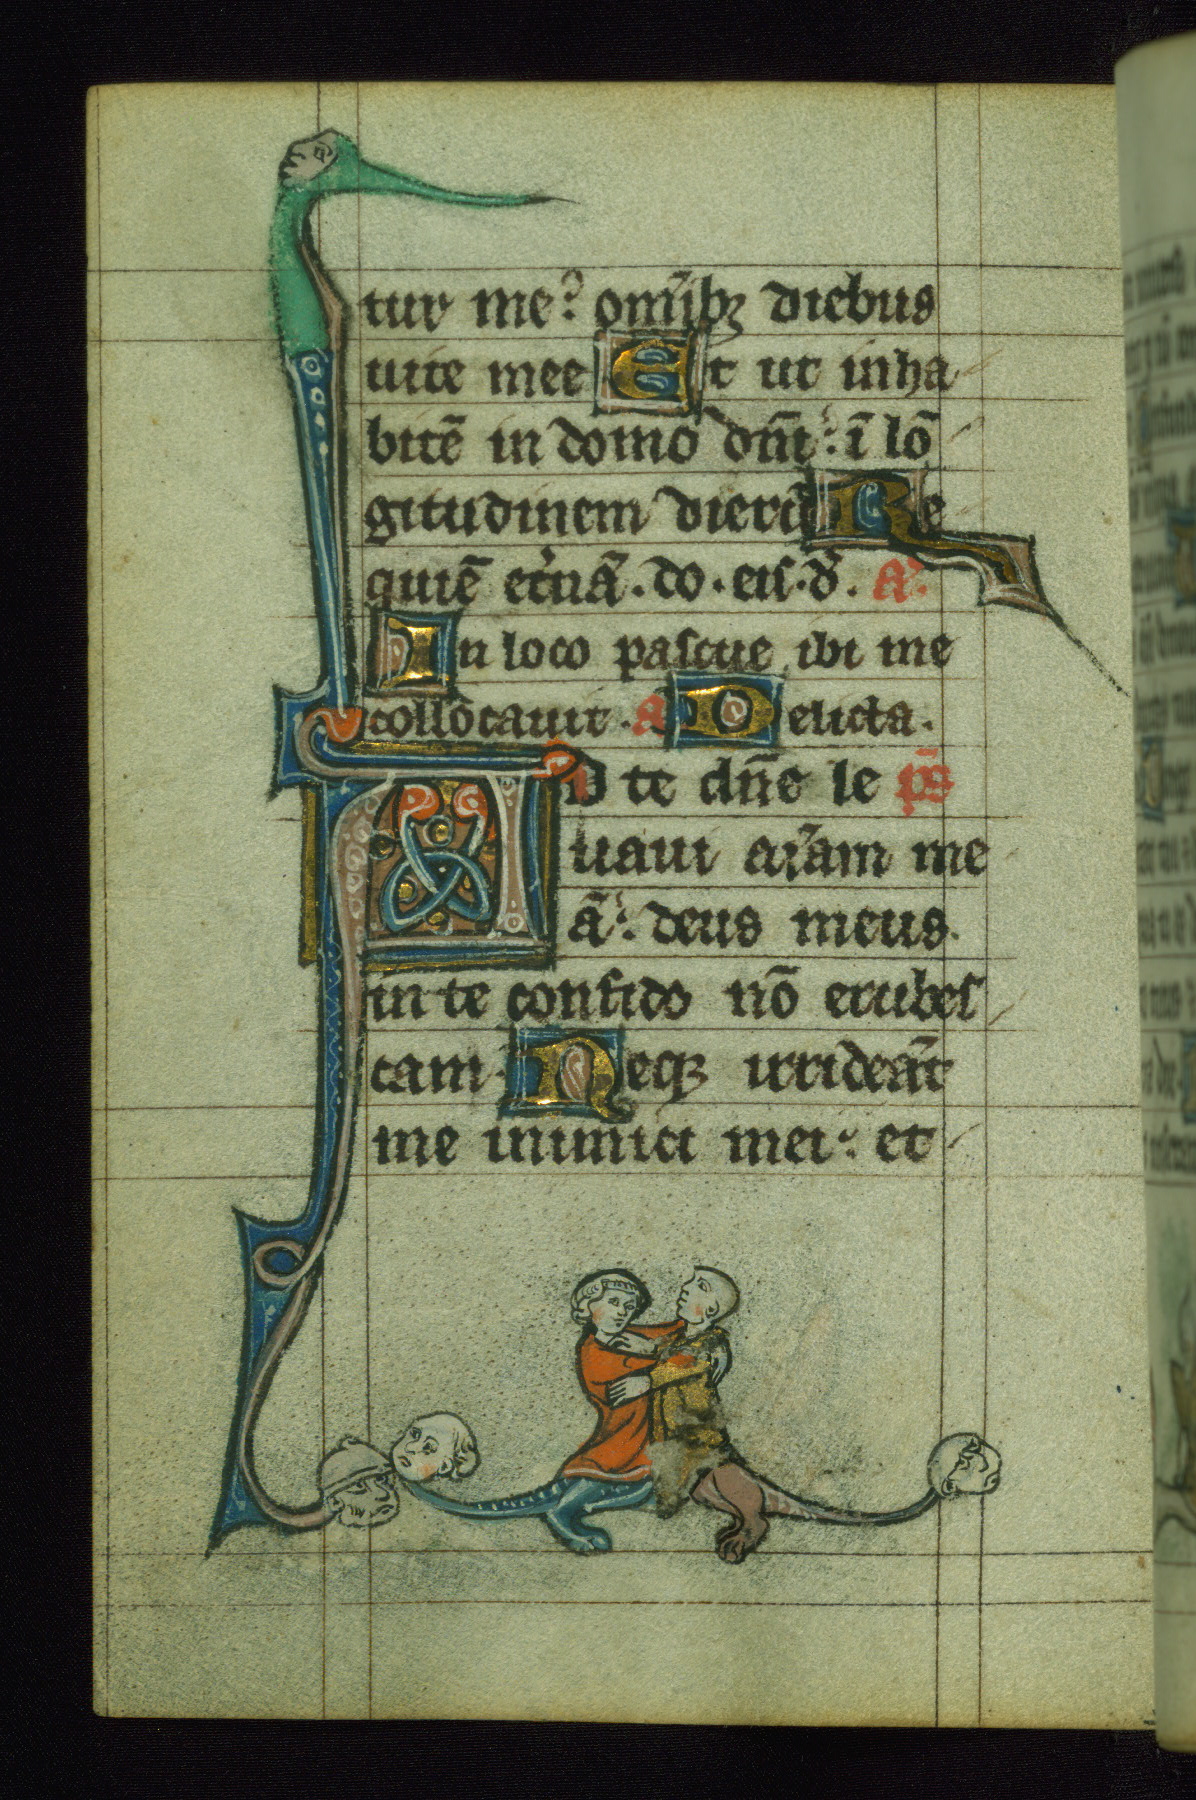 tur me: om̄ibꝫ diebus
uite mee Et ut inha
bitē in domo dn̄i: ī lō
gitudinem dierū Re
quiē et̾nā. do. eis. d̾. A̾.
In loco pascue ibi me
collocauit. a Delicta.
AD te dn̄e le ps̄
uaui a̾īam me
ā: deus meus.
in te confido nō erubes
cam. Neqꝫ irrideāt
me inimici mei: et